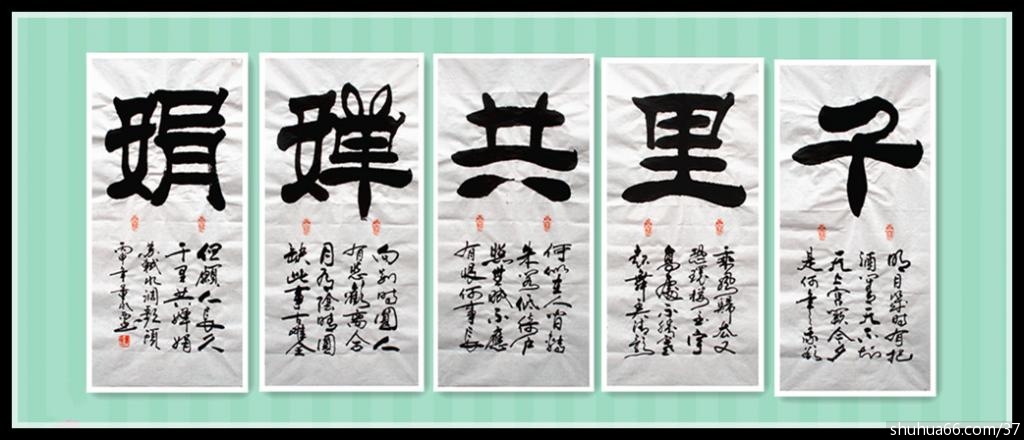 千
明月幾時有把
酒問青天不知
天上宮闕今夕
是何年我欲
里
乘風歸去又
恐瓊樓玉宇
高處不勝寒
起舞弄清影
共
何似在人間轉
朱閣低綺户
照無眠不應
有恨何事長
嬋
向别時圓人
有悲歡離合
月有陰晴圓
缺此事古難全
娟
但願人長久
千里共嬋娟
蘇軾水調歌頭
shuhua66.com/37